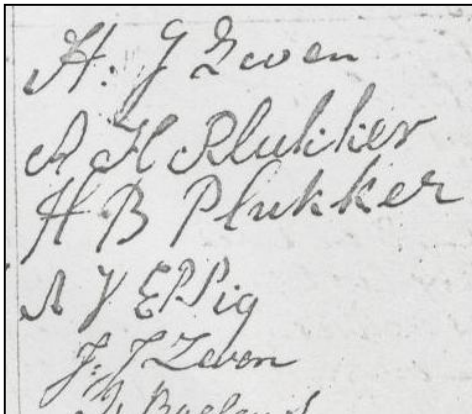 H. J Zeven
A H Plukker
H B Plukker
A V EPPig
J. J Zeven